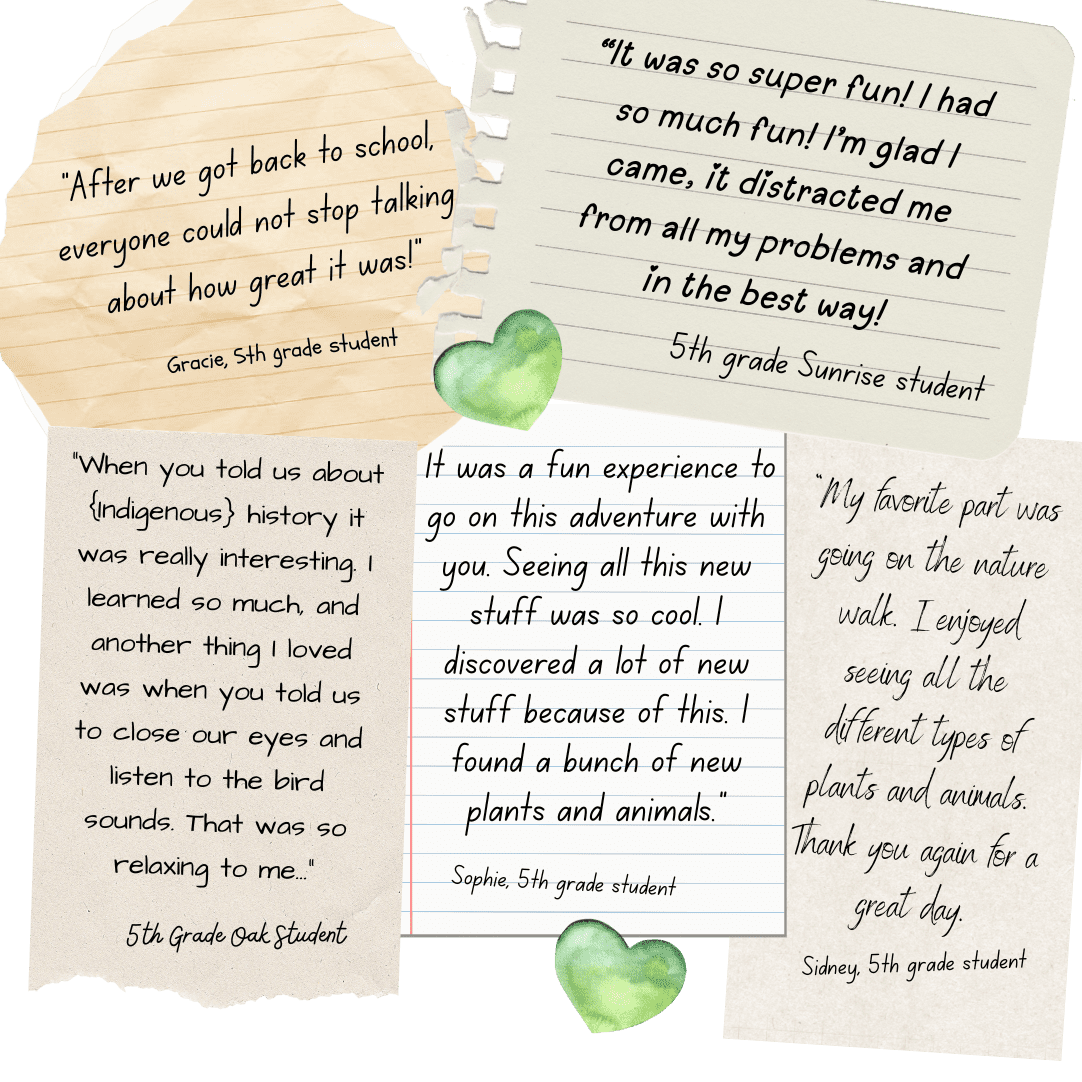 "After we got back to school,
everyone could not stop talking
about how great it was!"
Gracie, 5th grade student
“It was so super fun! I had
so much fun! I’m glad I
came, it distracted me
from all my problems and
in the best way!
5th grade Sunrise student
"When you told us about
{Indigenous} history it
was really interesting. I
learned so much, and
another thing I loved
was when you told us
to close our eyes and
listen to the bird
sounds. That was so
relaxing to me..."
5th Grade Oak Student
It was a fun experience to
go on this adventure with
you. Seeing all this new
stuff was so cool. I
discovered a lot of new
stuff because of this. I
found a bunch of new
plants and animals."
Sophie, 5th grade student
"My favorite part was
going on the nature
walk. I enjoyed
seeing all the
different types of
plants and animals.
Thank you again for a
great day.
Sidney, 5th grade student